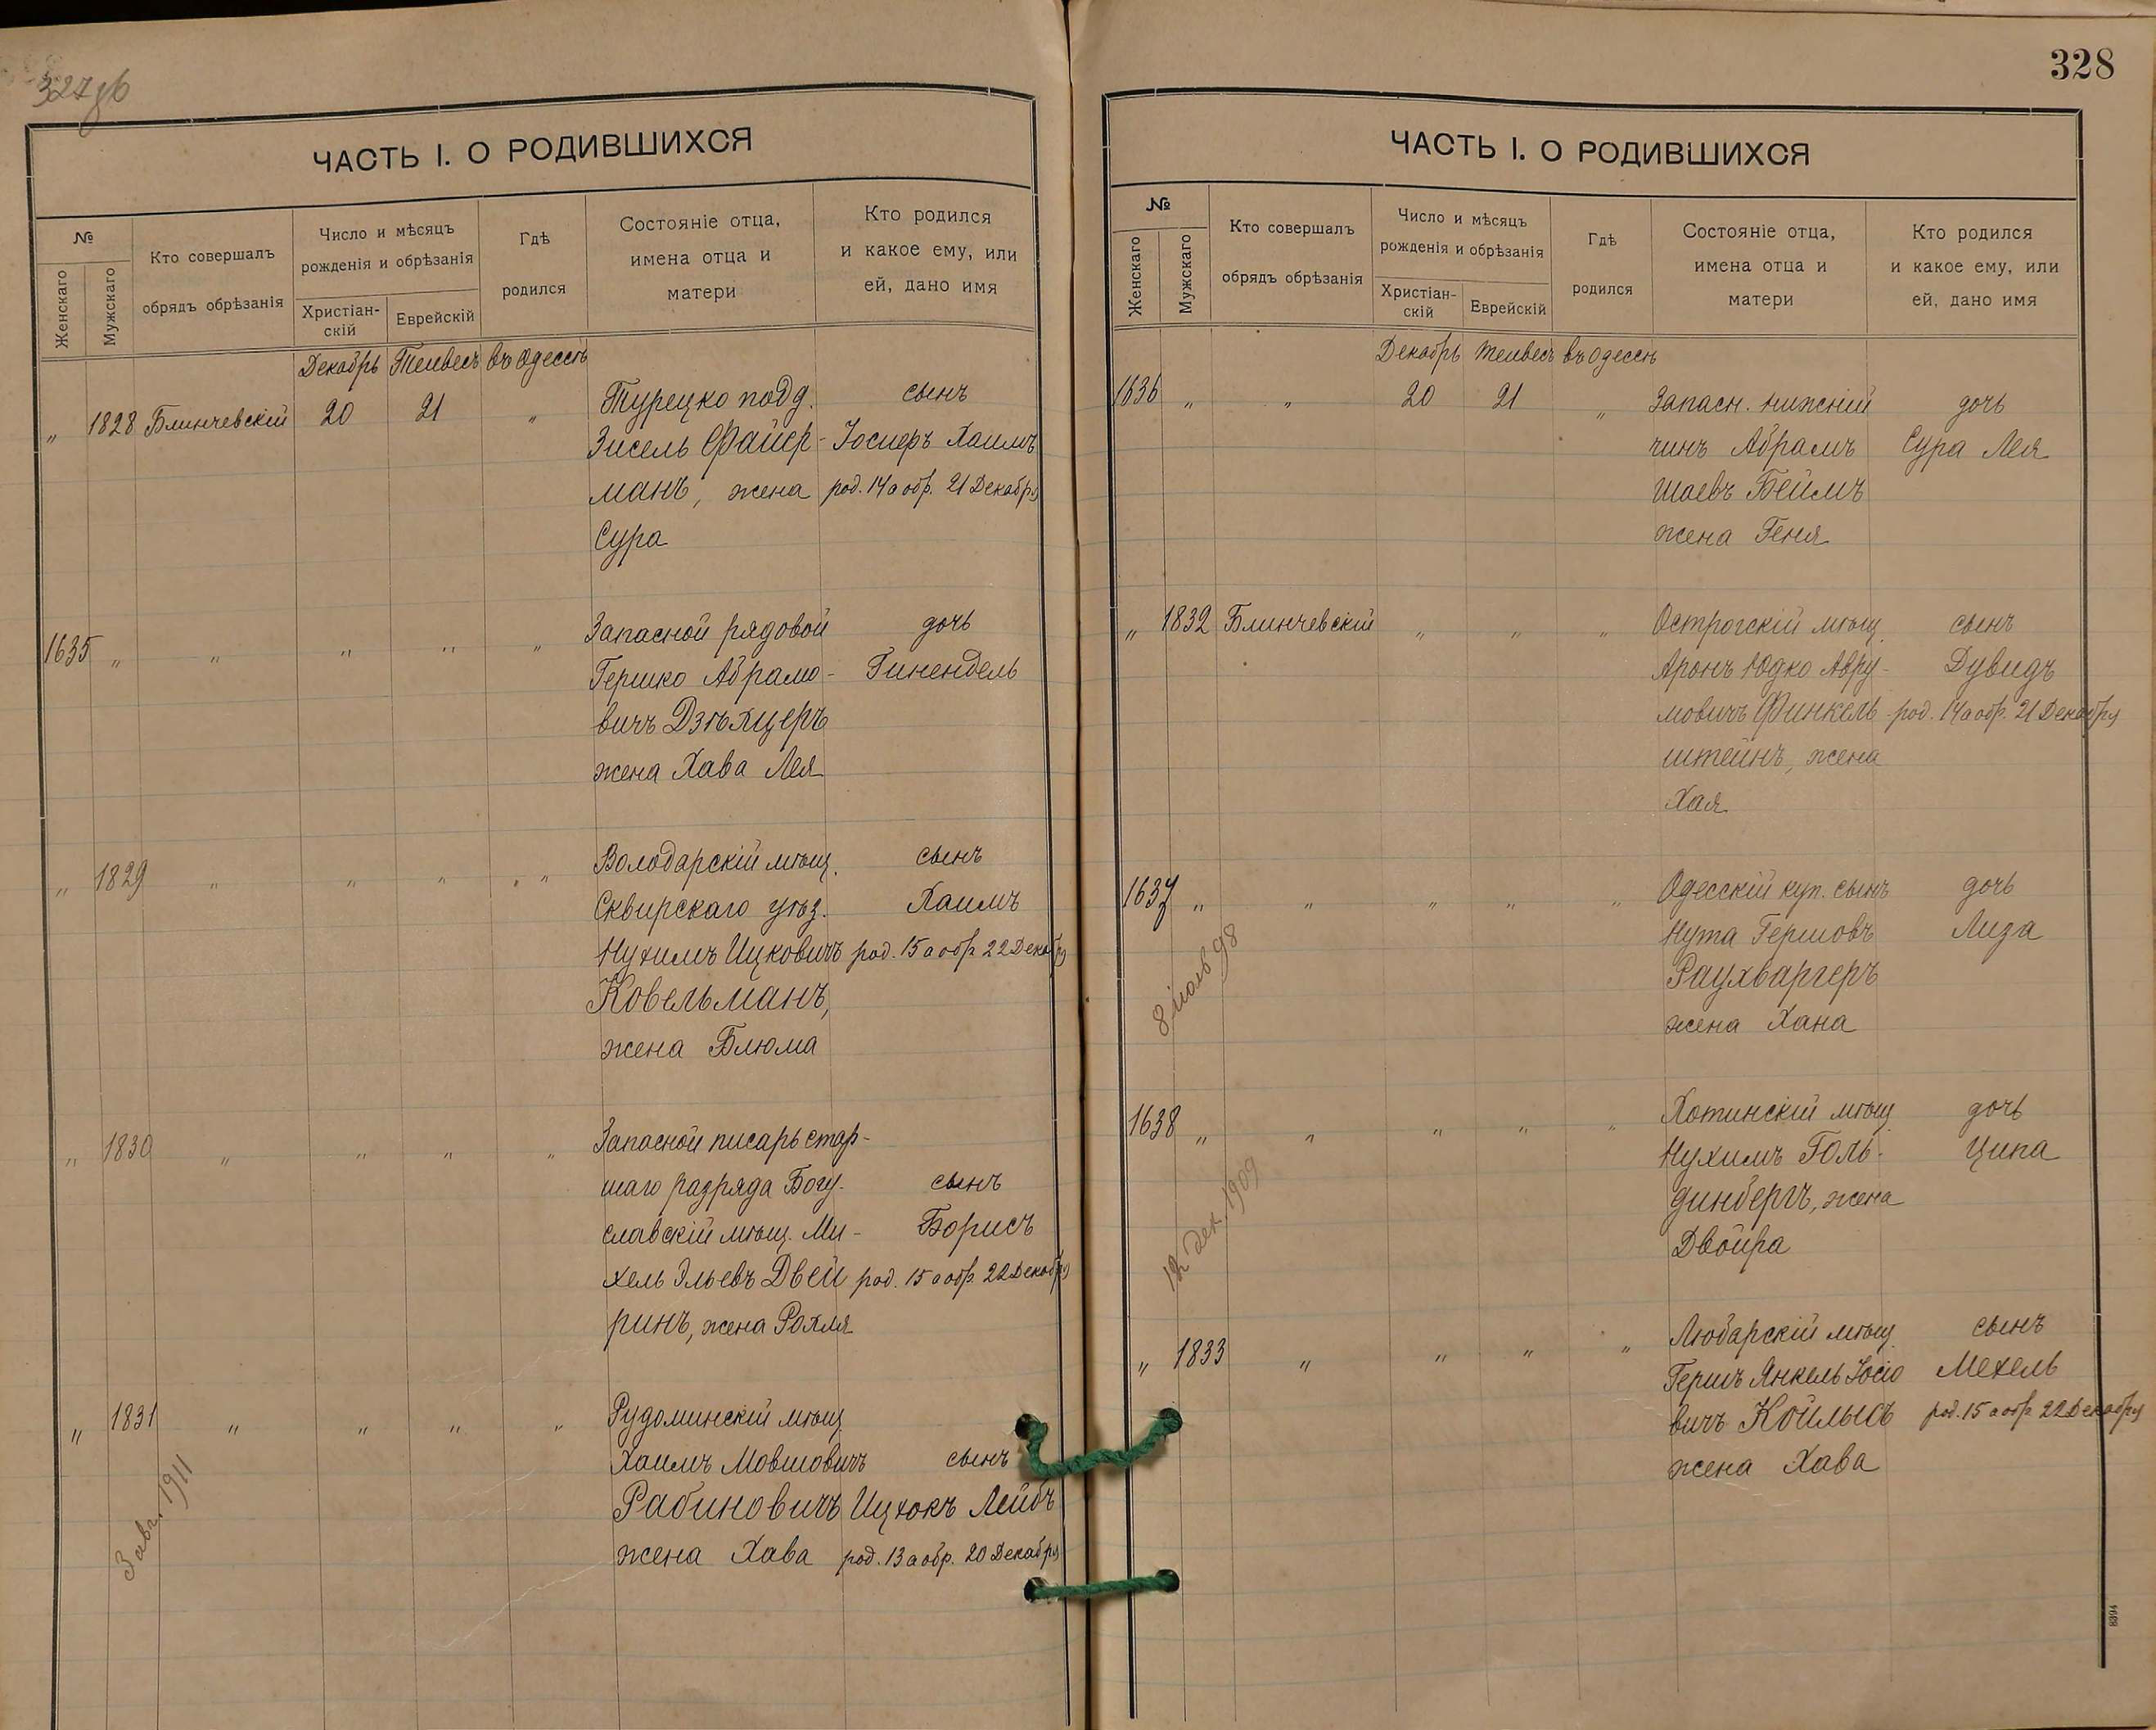 327об
ЧАСТЬ I. О РОДИВШИХСЯ
№
Женскаго
Мужскаго
Кто совершалъ
обрядъ обрѣзанія
Число и мѣсяцъ
рожденія и обрѣзанія
Христіан-
скій
Еврейскій
Гдѣ
родился
Состояніе отца,
имена отца и
матери
Кто родился
и какое ему, или
ей, дано имя
Декабрь Тейвесъ въ Одессѣ
„ 1828 Блинчевскій 20 21 „ Турецко подд. сынъ
Зисель Файер- Іосиеръ Хаимъ
манъ, жена род. 14 а обр. 21 Декабря
Сура
1635 „ „ „ „ „ Запасной рядовой дочь
Гершко Абрамо- Гинендель
вичъ Дзѣхцеръ
жена Хава Лея
„ 1829 „ „ „ „ Володарскій мѣщ. сынъ
Сквирскаго уѣз. Хаимъ
Нухимъ Ицковичъ род. 15 а обр. 22 Декабря
Ковельманъ,
жена Блюма
„ 1830 „ „ „ „ Запасной писарь стар-
шаго разряда Богу- сынъ
славскій мѣщ. Ми- Борисъ
хель Эльевъ Двей род. 15 а обр. 22 Декабря
ринъ, жена Рохля
„ 1831 „ „ „ „ Рудоминскій мѣщ.
Хаимъ Мовшовичъ сынъ
Рабиновичъ Ицхокъ Лейбъ
жена Хава род. 13 а обр. 20 Декабря
3 авг. 1911
328
ЧАСТЬ I. О РОДИВШИХСЯ
№
Женскаго
Мужскаго
Кто совершалъ
обрядъ обрѣзанія
Число и мѣсяцъ
рожденія и обрѣзанія
Христіан-
скій
Еврейскій
Гдѣ
родился
Состояніе отца,
имена отца и
матери
Кто родился
и какое ему, или
ей, дано имя
Декабрь Тейвесъ въ Одессѣ
1636 „ „ 20 21 „ Запасн. нижній дочь
чинъ Абрамъ Сура Лея
Шаевъ Беймъ
жена Геня
„ 1832 Блинчевскій „ „ „ Острогскій мѣщ. сынъ
Аронъ Юдко Авру- Дувидъ
мовичъ Финкель- род. 14 а обр. 21 Декабря
штейнъ, жена
Хая
1637 „ „ „ „ „ Одесскій куп. сынъ дочь
Нута Гершовъ Лиза
Раухваргеръ
жена Хана
8 іюль 98
1638 „ „ „ „ „ Хотинскій мѣщ. дочь
Нухимъ Голь- Ципа
динбергъ, жена
Двойра
12 дек. 1909
„ 1833 „ „ „ „ Любарскій мѣщ. сынъ
Гершъ Янкель Іосіо Мехель
вичъ Койлысъ род. 15 а обр. 22 Декабря
жена Хава